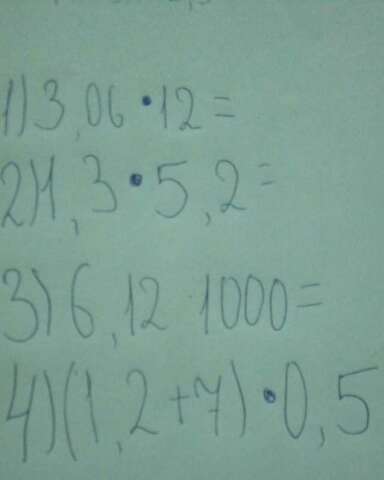 1) 3,06 • 12 =
2) 1,3 • 5,2 =
3) 6,12 1000 =
4) (1,2 + 7) • 0,5